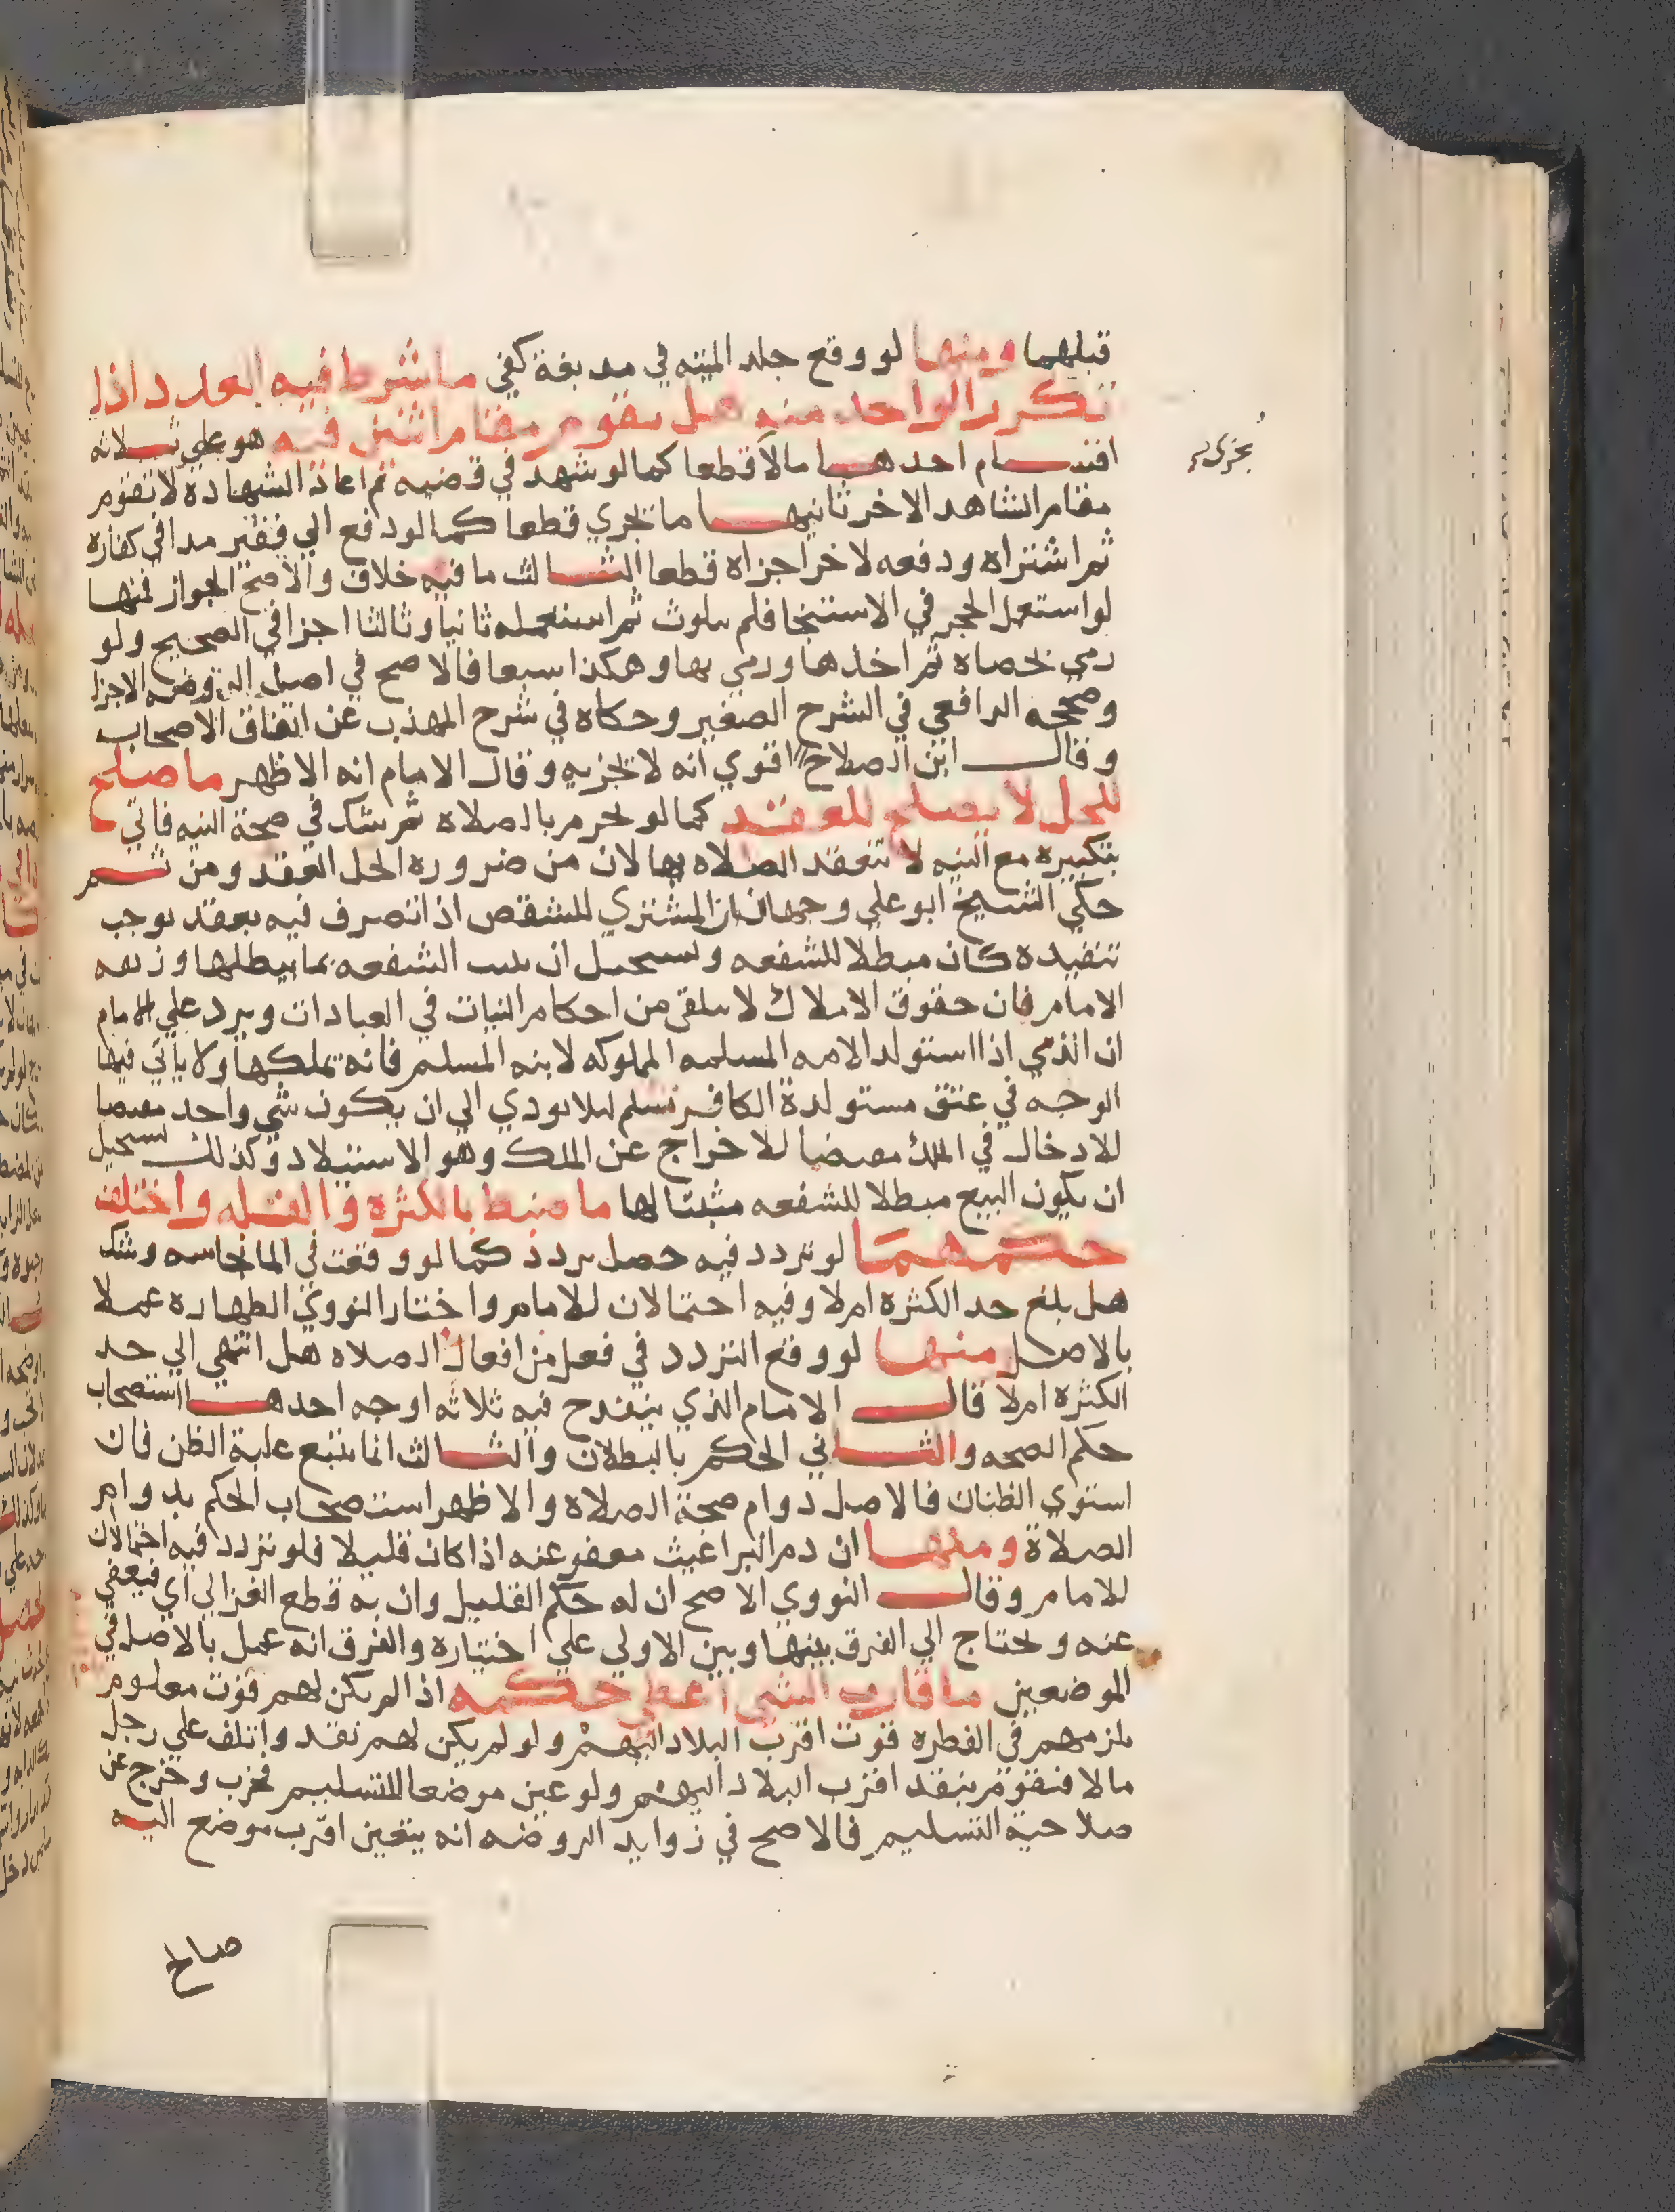 قبلهما ومنها لو وقع جلد الميته في مدبغة كفي ما شرط فيه العدد اذا
تكرر الواحد منه هل يقوم مقام اثنين فيه هو علي ثلاثه
اقسام احدها ما لا قطعا كما لو شهد في قضيه ثم اعاد الشهادة لا تقوم
مقام الشاهد الاخر ثانيها ما يجري قطعا كما لو دفع الي فقير مدا في كفاره
ثم اشتراه ودفعه لاخر اجزاه قطعا الثالث ما فيه خلاف والاصح الجواز فمنها
لو استعمل الحجر في الاستنجا فلم يتلوث ثم استعمله ثانيا وثالثا اجزا في الصحيح ولو
رمي بحصاه ثم اخذها ورمي بها وهكذا سبعا فالاصح في اصل الروضه الاجزا
وصححه الرافعي في الشرح الصغير وحكاه في شرح المهذب عن اتفاق الاصحاب
وقال ابن الصلاح اقوي انه لا يجزيه وقال الامام انه الاظهر ما صلح
للحل لا يصلح للعقد كما لو تحرم بالصلاه ثم شك في صحة النيه فاتي
بتكبيره مع النيه لا تنعقد الصلاه بها لان من ضروره الحل العقد ومن ثم
حكي الشيخ ابو علي وجها ان المشتري للشقص اذا تصرف فيه بعقد يوجب
تنفيذه كان مبطلا للشفعه ويستحيل ان يثبت الشفعه بما يبطلها وزيفه
الامام فان حقوق الاملاك لا يتلقي من احكام النيات في العبادات ويرد علي الامام
ان الذمي اذا استولد الامه المسلمه المملوكه لابنه المسلم فانه يملكها ولا ياتي فيها
الوجه في عتق مستولدة الكافر تسلم ليلا يودي الي ان يكون شي واحد مقتضيا
للادخال في الملك مقتضيا للاخراج عن الملك وهو الاستيلاد وكذلك يستحيل
ان يكون البيع مبطلا للشفعه مثبتا لها ما ضبط بالكثره والقله واختلف
حكمهما لو تردد فيه حصل تردد كما لو وقعت في الما نجاسه وشك
هل بلغ حد الكثره ام لا وفيه احتمالان للامام واختار النووي الطهاره عملا
بالاصل منها لو وقع التردد في فعل من افعال الصلاه هل انتهي الي حد
الكثره ام لا قال الامام الذي ينقدح فيه ثلاثه اوجه احدها استصحاب
حكم الصحه والثاني الحكم بالبطلان والثالث انا نتبع غلبة الظن فان
استوي الظنان فالاصل دوام صحة الصلاه والاظهر استصحاب الحكم بدوام
الصلاة ومنها ان دم البراغيث معفو عنه اذا كان قليلا فلو تردد فيه احتمالان
للامام وقال النووي الاصح ان له حكم القليل وان به قطع الغزالي اي فيعفي
عنه ويحتاج الي الفرق بينها وبين الاولي علي اختياره والفرق انه عمل بالاصل في
الموضعين ما قارب الشي اعطي حكمه اذا لم يكن لهم قوت معلوم
يلزمهم في الفطره قوت اقرب البلاد اليهم ولو لم يكن لهم نقد واتلف علي رجل
مالا فيقوم بنقد اقرب البلاد اليهم ولو عين موضعا للتسليم فخرب وخرج عن
صلاحية التسليم فالاصح في زوايد الروضه انه يتعين اقرب موضع اليه
صالح